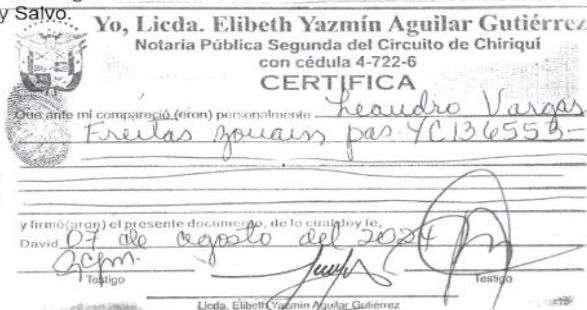 y Salvo.
Yo, Licda. Elibeth Yazmín Aguilar Gutiérrez
Notaria Pública Segunda del Circuito de Chiriquí
con cédula 4-722-6
CERTIFICA
Que ante mí compareció (eron) personalmente Leandro Vargas
Freitas zouain pas. YC136553-
y firmó(aron) el presente documento, de lo cual doy fe,
David 07 de agosto del 2024
Testigo Testigo
Licda. Elibeth Yazmín Aguilar Gutiérrez